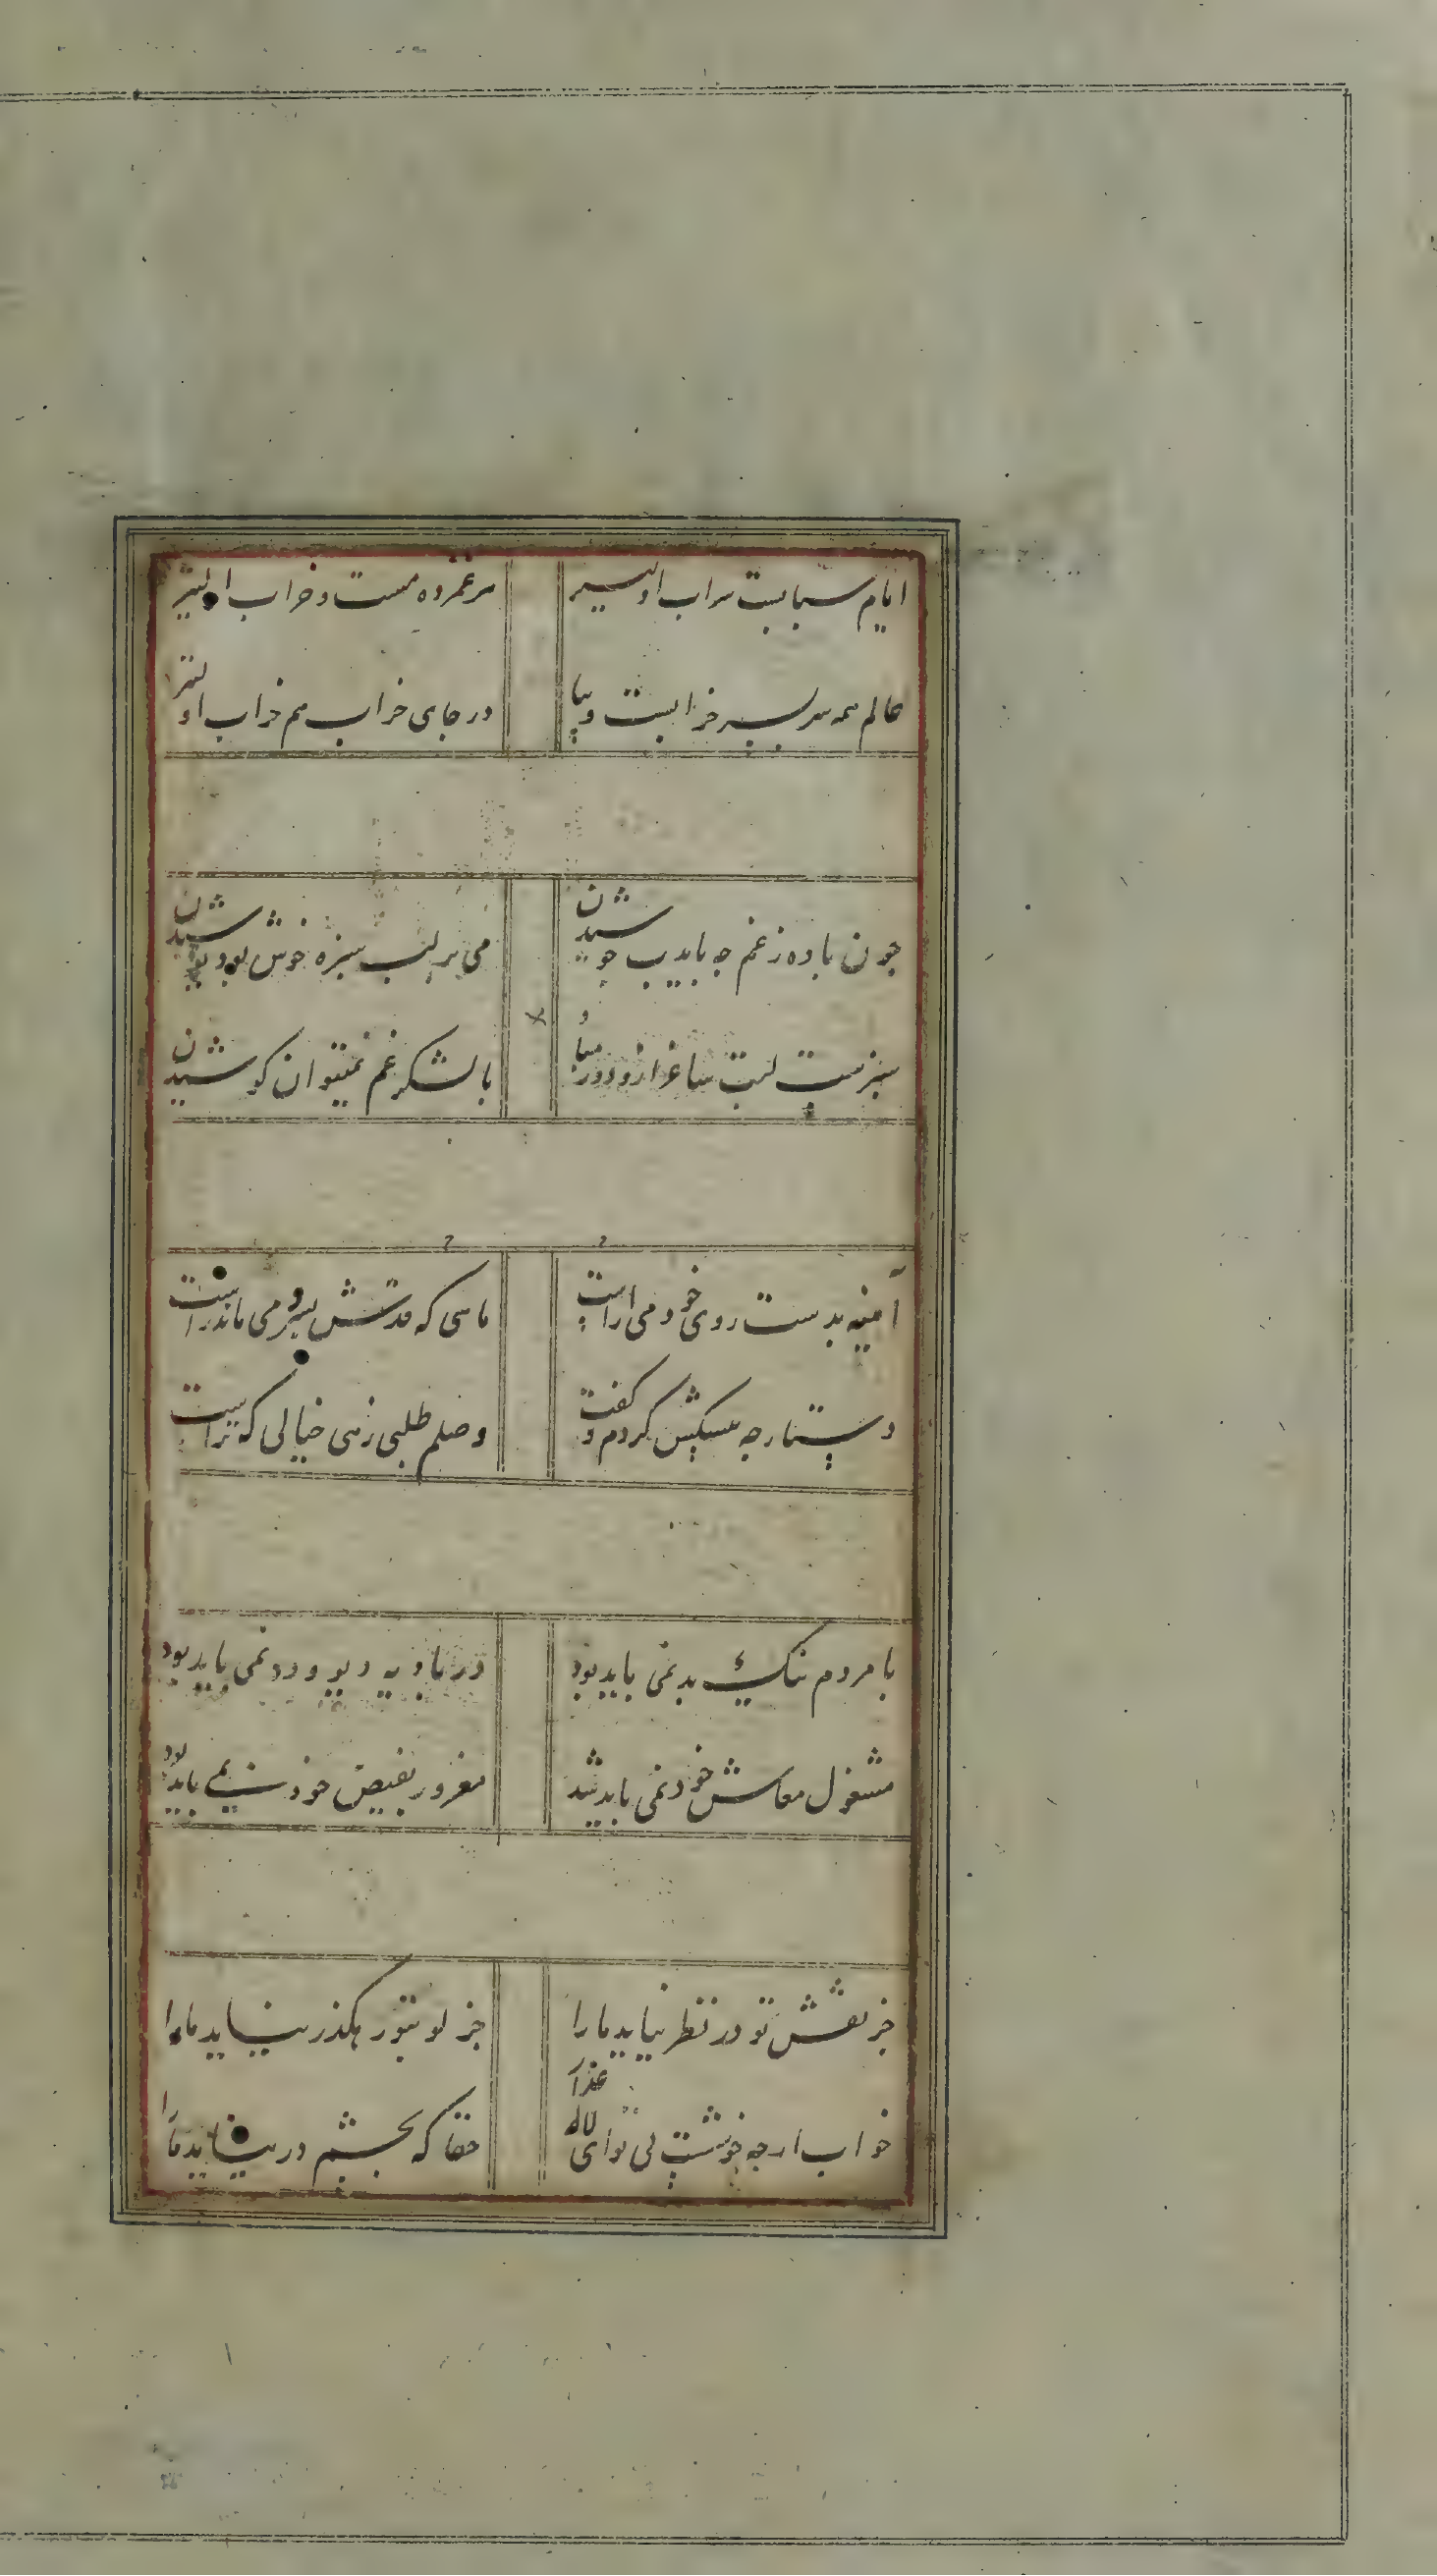 ایام شبابست شراب اولیتر
هر غمزده مست و خراب اولیتر
عالم همه سر بسر خرابست و یباب
در جای خراب هم خراب اولیتر
چون باده ز غم چه بایدت جوشیدن
می بر لب سبزه خوش بود نوشیدن
سبزست لبت ساغر ازو دور مدار
با لشکر غم نمیتوان کوشیدن
آمینه بدست روی خود می اراست
ماهی که قدش بسرو می ماند راست
دستارجه پیشکش کردم و گفت
وصلم طلبی زهی خیالی که تراست
با مردم نیک بد نمی باید بود
در بادیه دیو و دد نمی باید بود
مشغول معاش خود نمی باید شد
مغرور بفیض خود نمی باید بود
جز نقش تو در نظر نیاید ما را
جز کوی تو رهگذر نیاید ما را
خواب ارجه خوشست بی تو ای لاله عذار
حقا که بچشم در نیاید ما را